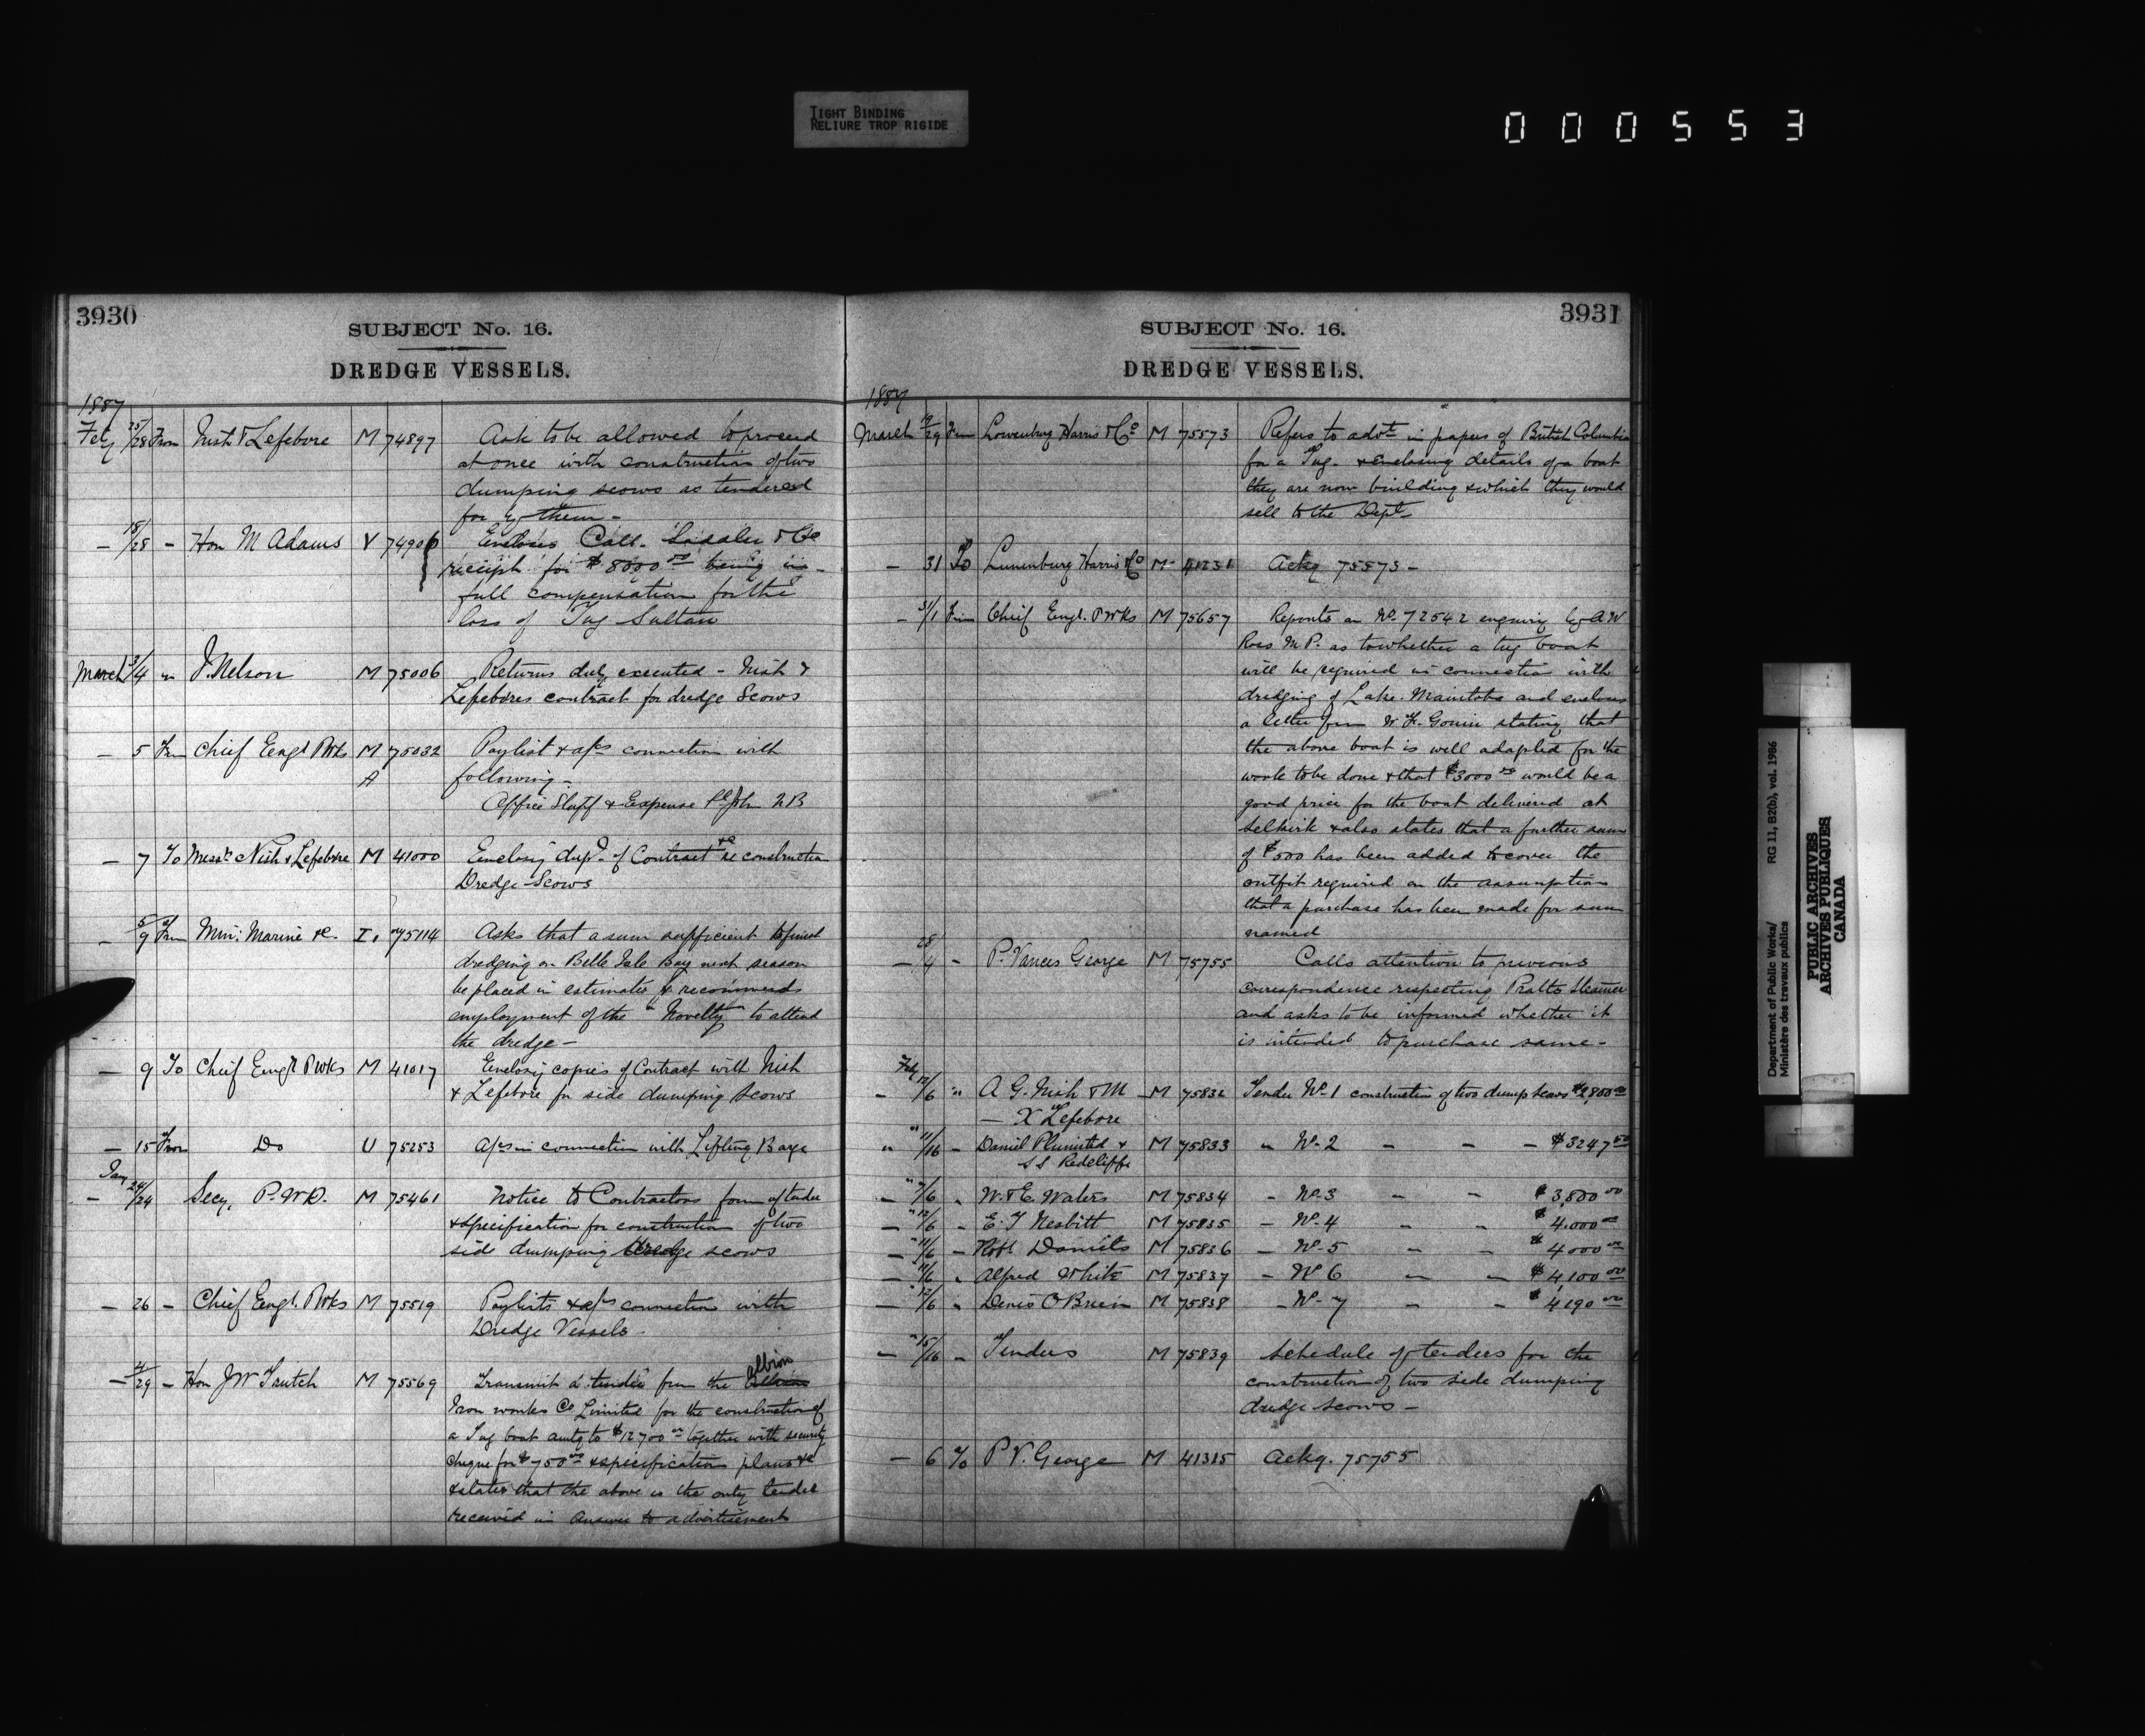 TIGHT BINDING
RELIURE TROP RIGIDE
000553
3930
SUBJECT No. 16.
DREDGE VESSELS.
1887
Feby 25/28 From Nish & Lefebvre M 74897 Ask to be allowed to proceed
at once with construction of two
dumping scows as tendered
for by them -
— 18/28 - Hon M Adams V 74906 Encloses Call. & Co
receipt for $8000 00 being in
full compensation for the
loss of Tug Sultan
March 3/4 " J. Nelson M 75006 Returns duly executed - Nish &
Lefebvres contract for dredge Scows
— 5 Frm Chief Engr P Wks M 75032 Paylist & a/cs connection with
A following -
Office Staff & Expense St John N B
— 7 To Messrs Nish & Lefebvre M 41000 Enclosing dup. of Contract &c re construction
Dredge Scows
— 5/9 Frm Min: Marine &c. I. 75114 Asks that a sum sufficient to finish
dredging on Belle Isle Bay next season
be placed in estimates & recommends
employment of the "Novelty" to attend
the dredge -
— 9 To Chief Engr P Wks M 41017 Enclosing copies of Contract with Nish
& Lefebvre for side dumping Scows
— 15 From Do U 75253 A/cs in connection with Lifting Barge
Jany
— 24/24 Secy. P.W.D. M 75461 Notice to Contractors form of tender
& specification for construction of two
side dumping dredge scows
— 26 - Chief Engr. P Wks M 75519 Paylists & a/cs connection with
Dredge Vessels.
— 4/29 - Hon J W Trutch M 75569 Transmit a tender from the Albion
Iron works Co Limited for the construction of
a Tug boat amtg to $12700 00 together with security
cheque for $750 00 & specification plans &c
& states that the above is the only tender
received in answer to advertisement
3931
SUBJECT No. 16.
DREDGE VESSELS.
1887
March 19/29 Frm Lowenburg Harris & Co M 75573 Refers to advt in papers of British Columbia
for a Tug. & Enclosing details of a boat
they are now building & which they would
sell to the Dept
— 31 To Lunenburg Harris & Co M 41231 Ackg 75573 -
— 31/1 Frm Chief Engr. P Wks M 75657 Reports on No 72542 enquiry by A W
Ross M P. as to whether a tug boat
will be required in connection with
dredging of Lake Manitoba and encloses
a letter from W. F. Gouin stating that
the above boat is well adapted for the
work to be done & that $3000 00 would be a
good price for the boat delivered at
Selkirk & also states that a further sum
of $500 has been added to cover the
outfit required on the assumption
that a purchase has been made for sum
named
— 28/4 - P. Vances George M 75755 Calls attention to previous
correspondence respecting Pratts Steamer
and asks to be informed whether it
is intended to purchase same -
Feby
- 12/6 " A G. Nish & M M 75832 Tender No 1 construction of two dump scows $2,800 00
— X Lefebvre
" 11/16 - Daniel & M 75833 " No 2 - - - $3247 50
S S Redcliffe
— 7/6 " W. & E. Waters M 75834 - No 3 - - $3,800 00
— 12/6 - E. T Nesbitt M 75835 - No 4 - - $4.000 00
— 11/6 - Robt Daniels M 75836 - No 5 - - $4000 00
— 11/6 " Alfred White M 75837 - No 6 - - $4,100 00
— 12/6 " Denis O Brien M 75838 - No 7 - - $4190 00
— 15/16 - Tenders M 75839 Schedule of tenders for the
construction of two side dumping
dredge scows -
— 6 To P V. George M 41315 Ackg. 75755
Department of Public Works/ RG 11, B2(b), vol. 1986
Ministère des travaux publics
PUBLIC ARCHIVES
ARCHIVES PUBLIQUES
CANADA